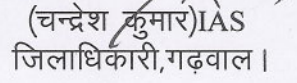 (चन्द्रेश कुमार)IAS
जिलाधिकारी,गढ़वाल।